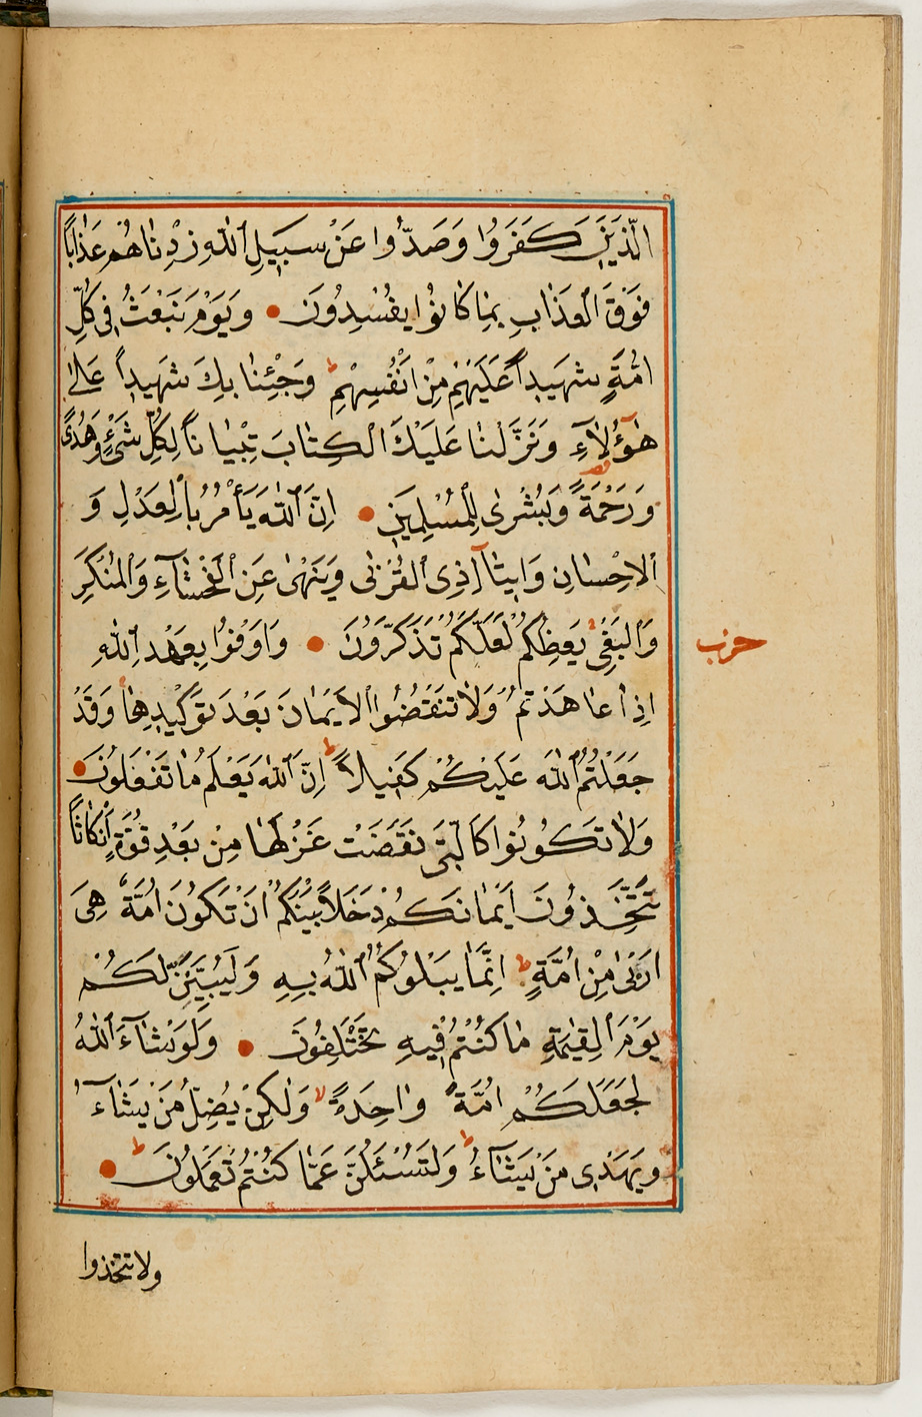 الَّذِينَ كَفَرُوا وَصَدُّوا عَنْ سَبِيلِ اللهِ زِدْنَاهُمْ عَذَابًا
فَوْقَ الْعَذَابِ بِمَا كَانُوا يُفْسِدُونَ ● وَيَوْمَ نَبْعَثُ فِي كُلِّ
اُمَّةٍ شَهِيدًا عَلَيْهِمْ مِنْ اَنْفُسِهِمْ ط وَجِئْنَا بِكَ شَهِيدًا عَلٰى
هٰؤُلَاءِ وَنَزَّلْنَا عَلَيْكَ الْكِتَابَ تِبْيَانًا لِكُلِّ شَيْءٍ وَهُدًى
وَرَحْمَةً وَبُشْرٰى لِلْمُسْلِمِينَ ● اِنَّ اللهَ يَأْمُرُ بِالْعَدْلِ وَ
الْاِحْسَانِ وَاِيتَآءِ ذِي الْقُرْبٰى وَيَنْهٰى عَنِ الْفَحْشَآءِ وَالْمُنْكَرِ
وَالْبَغْيِ يَعِظُكُمْ لَعَلَّكُمْ تَذَكَّرُونَ ● وَاَوْفُوا بِعَهْدِ اللهِ
حزب
اِذَا عَاهَدْتُمْ وَلَا تَنْقُضُوا الْاَيْمَانَ بَعْدَ تَوْكِيدِهَا وَقَدْ
جَعَلْتُمُ اللهَ عَلَيْكُمْ كَفِيلًا ط اِنَّ اللهَ يَعْلَمُ مَا تَفْعَلُونَ ●
وَلَا تَكُونُوا كَالَّتِي نَقَضَتْ غَزْلَهَا مِنْ بَعْدِ قُوَّةٍ اَنْكَاثًا
تَتَّخِذُونَ اَيْمَانَكُمْ دَخَلًا بَيْنَكُمْ اَنْ تَكُونَ اُمَّةٌ هِيَ
اَرْبٰى مِنْ اُمَّةٍ ط اِنَّمَا يَبْلُوكُمُ اللهُ بِهِ وَلَيُبَيِّنَنَّ لَكُمْ
يَوْمَ الْقِيٰمَةِ مَا كُنْتُمْ فِيهِ تَخْتَلِفُونَ ● وَلَوْ شَآءَ اللهُ
لَجَعَلَكُمْ اُمَّةً وَاحِدَةً لا وَلٰكِنْ يُضِلُّ مَنْ يَشَآءُ
وَيَهْدِي مَنْ يَشَآءُ ط وَلَتُسْئَلُنَّ عَمَّا كُنْتُمْ تَعْمَلُونَ ط ●
ولا تتخذوا